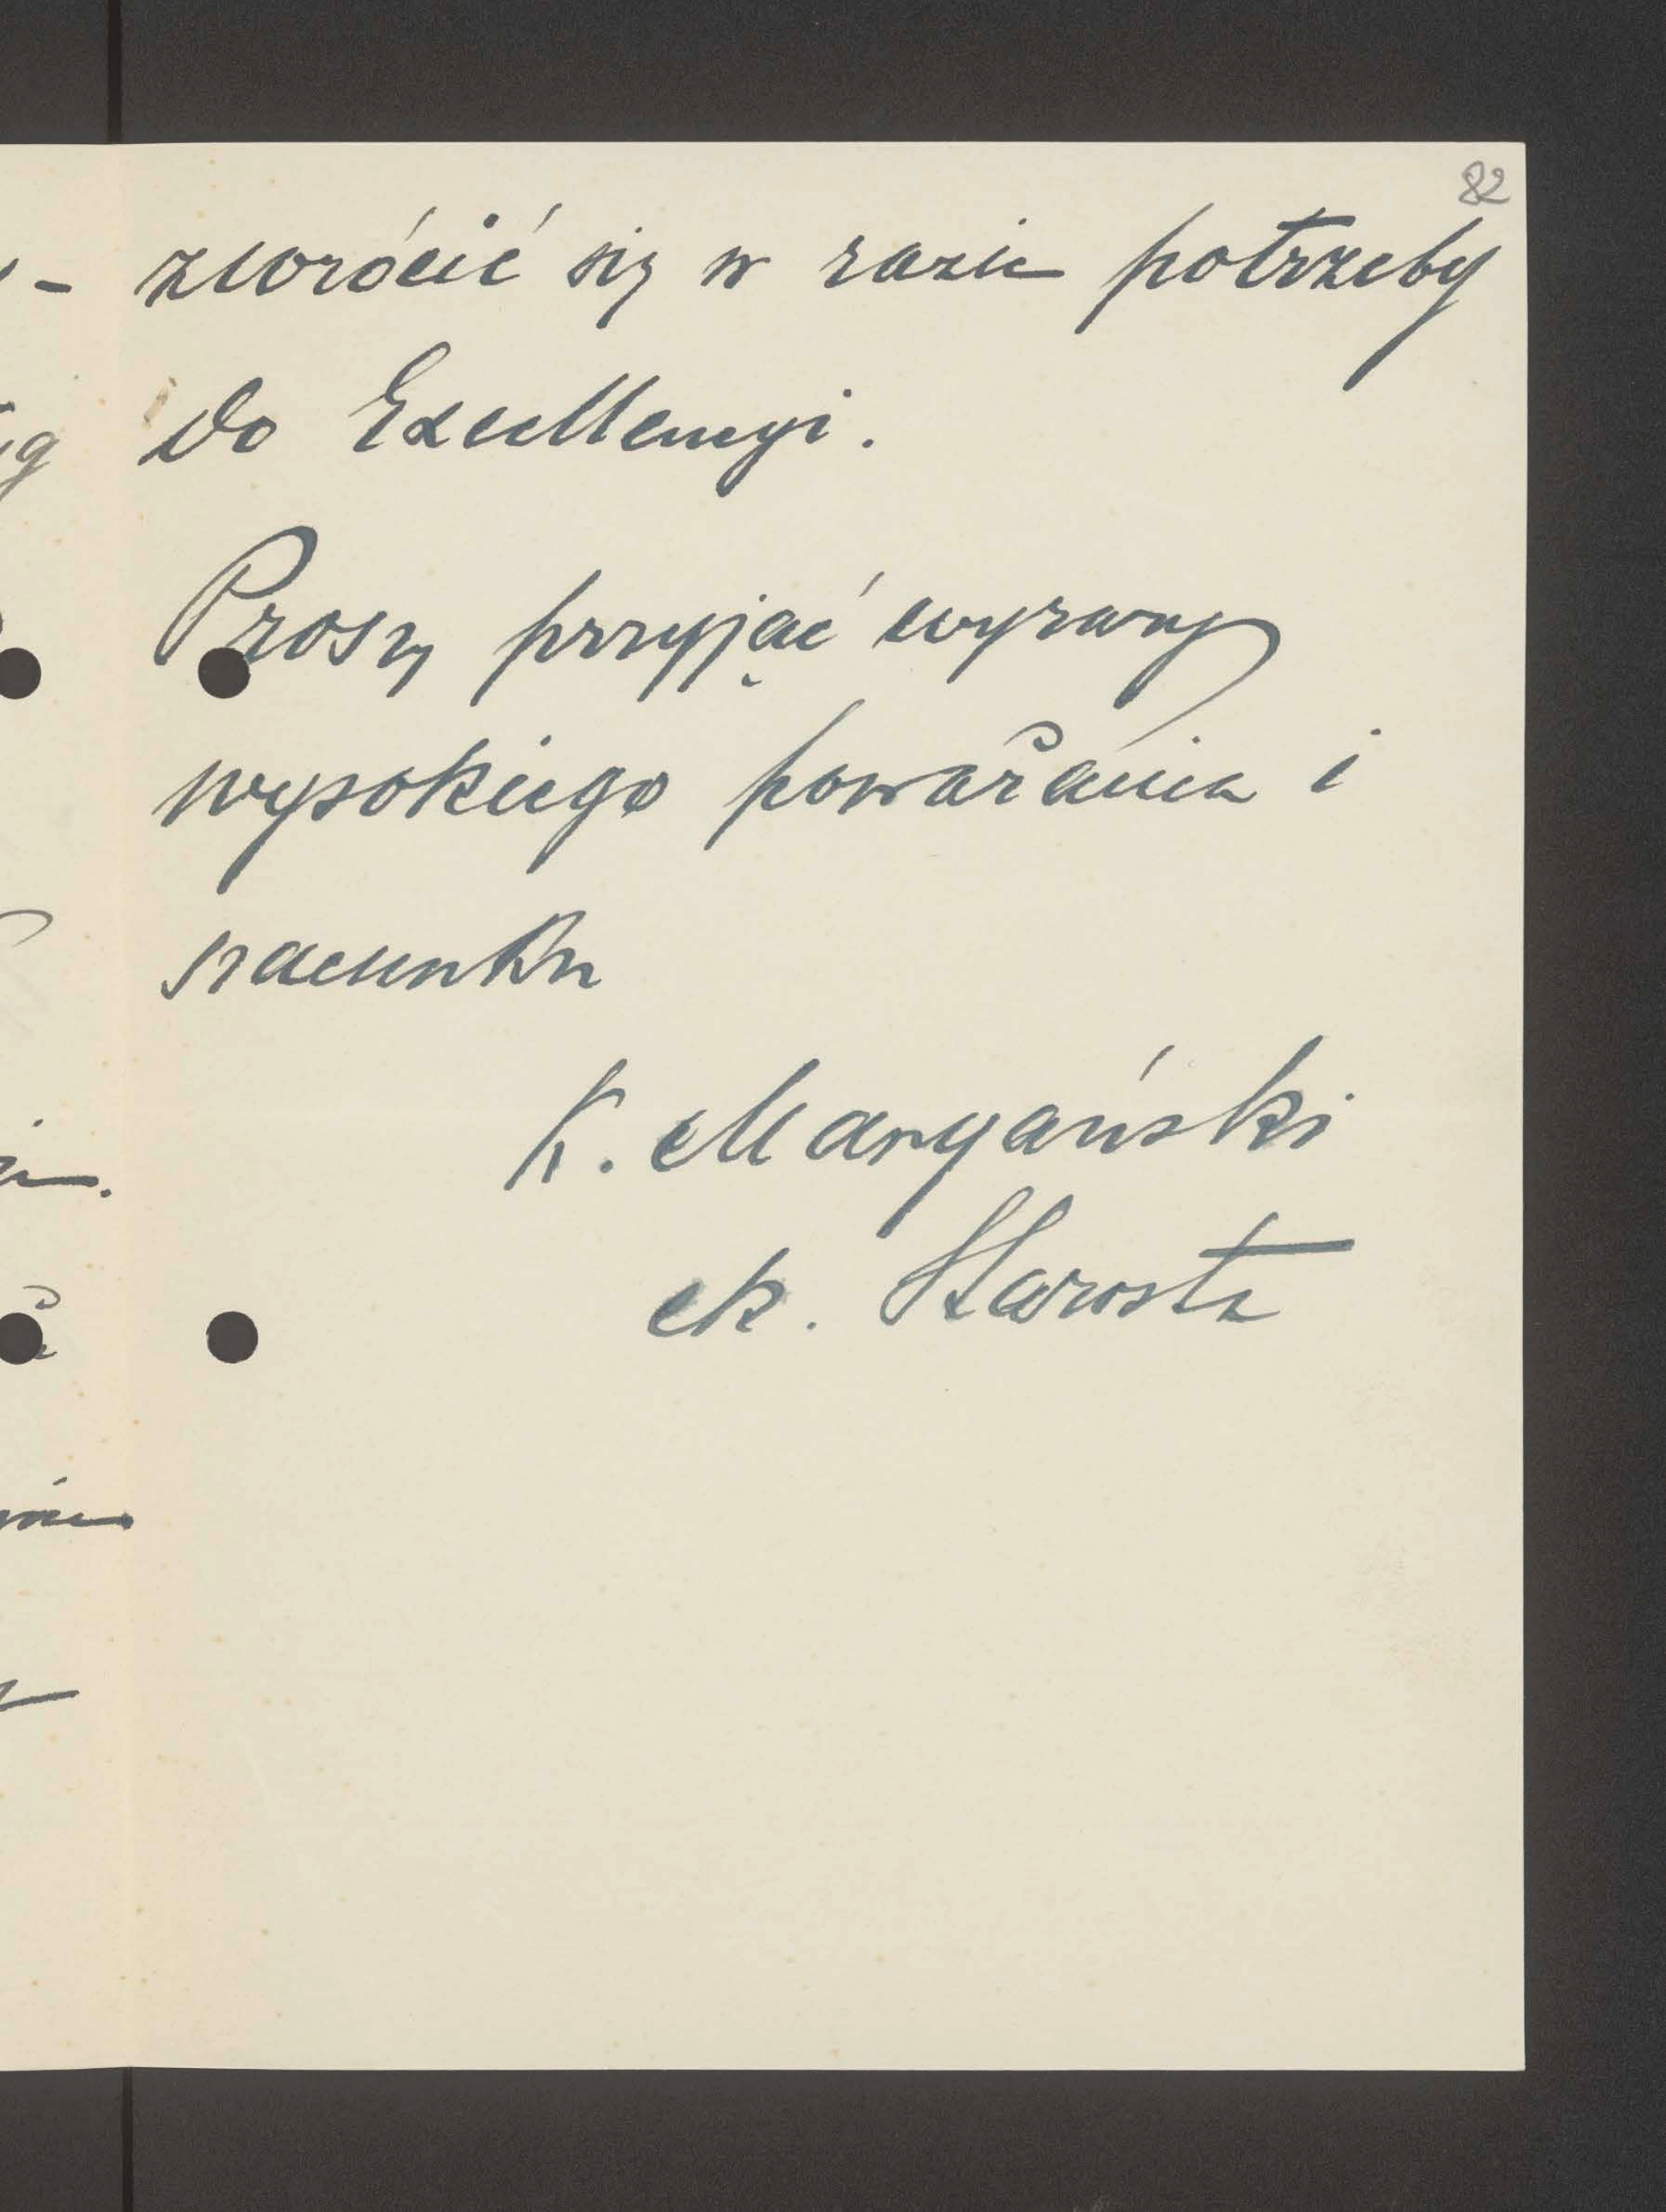 82
zwrócić się w razie potrzeby
do Excellencyi.
Proszę przyjąć wyrazy
wysokiego poważania i
szacunku
K. Maryański
ck. Starosta